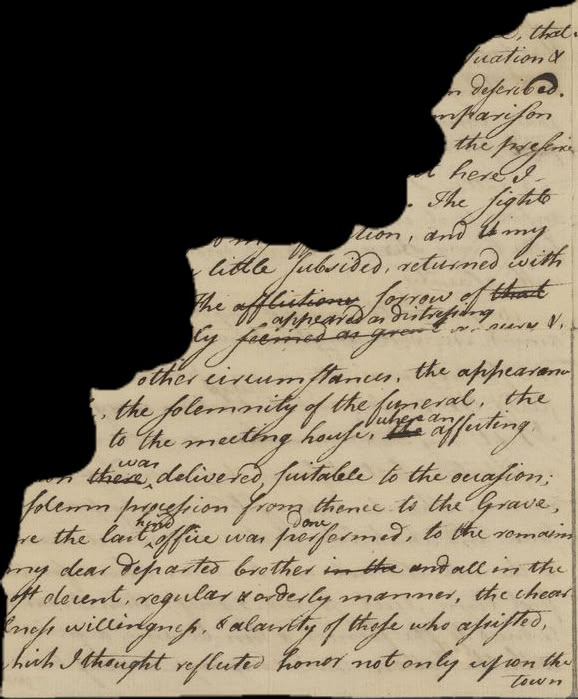 that
tuation &
n described.
mparison
the presen
here I
. The sight
tion, and my
little subsided, returned with
The afflictions sorrow of that
appeared as distressing
ly seemed as great
other circumstances, the appearanc
, the solemnity of the funeral, the
where an
to the meeting house, the affecting
was
there delivered, suitable to the occasion;
solemn procession from thence to the Grave,
kind done
re the last office was performed, to the remain
my dear departed brother in the and all in the
st decent, regular & orderly manner, the chear
lness willingness, & alacrity of those who assisted,
hich I thought reflected honor not only upon the
town